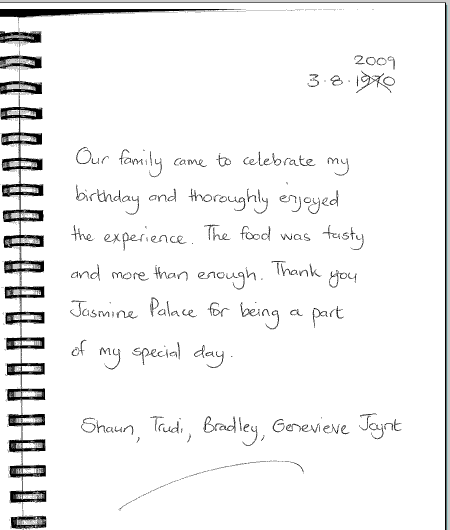 2009
3.8.1970
Our family came to celebrate my
birthday and thoroughly enjoyed
the experience. The food was tasty
and more than enough. Thank you
Jasmine Palace for being a part
of my special day.
Shaun, Trudi, Bradley, Genevieve Joynt